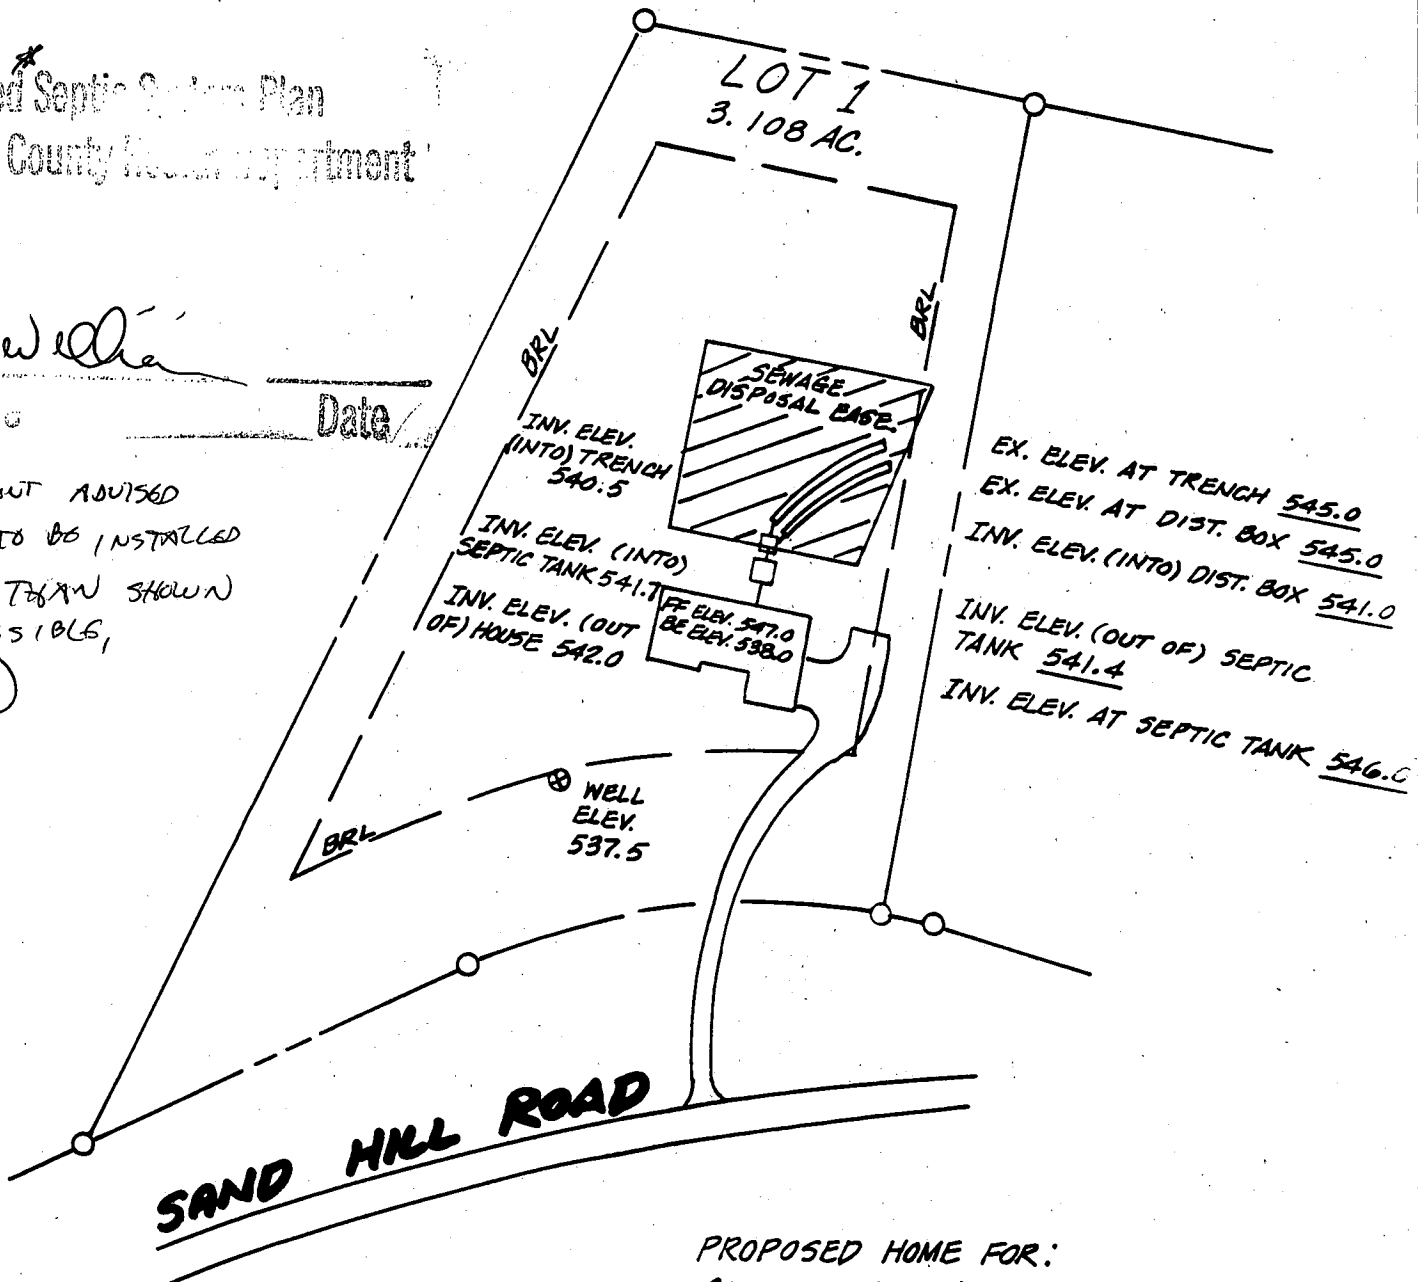 LOT 1
3.108 AC.
ed Septic System Plan
County Health Department
Date
ADVISED
TO BE INSTALLED
THAN SHOWN
BRL
BRL
SEWAGE
DISPOSAL EASE.
INV. ELEV.
(INTO) TRENCH
540.5
INV. ELEV. (INTO)
SEPTIC TANK 541.7
INV. ELEV. (OUT
OF) HOUSE 542.0
FF ELEV. 547.0
BE ELEV. 538.0
EX. ELEV. AT TRENCH 545.0
EX. ELEV. AT DIST. BOX 545.0
INV. ELEV. (INTO) DIST. BOX 541.0
INV. ELEV. (OUT OF) SEPTIC
TANK 541.4
INV. ELEV. AT SEPTIC TANK
WELL
ELEV.
537.5
BRL
SAND HILL ROAD
PROPOSED HOME FOR: